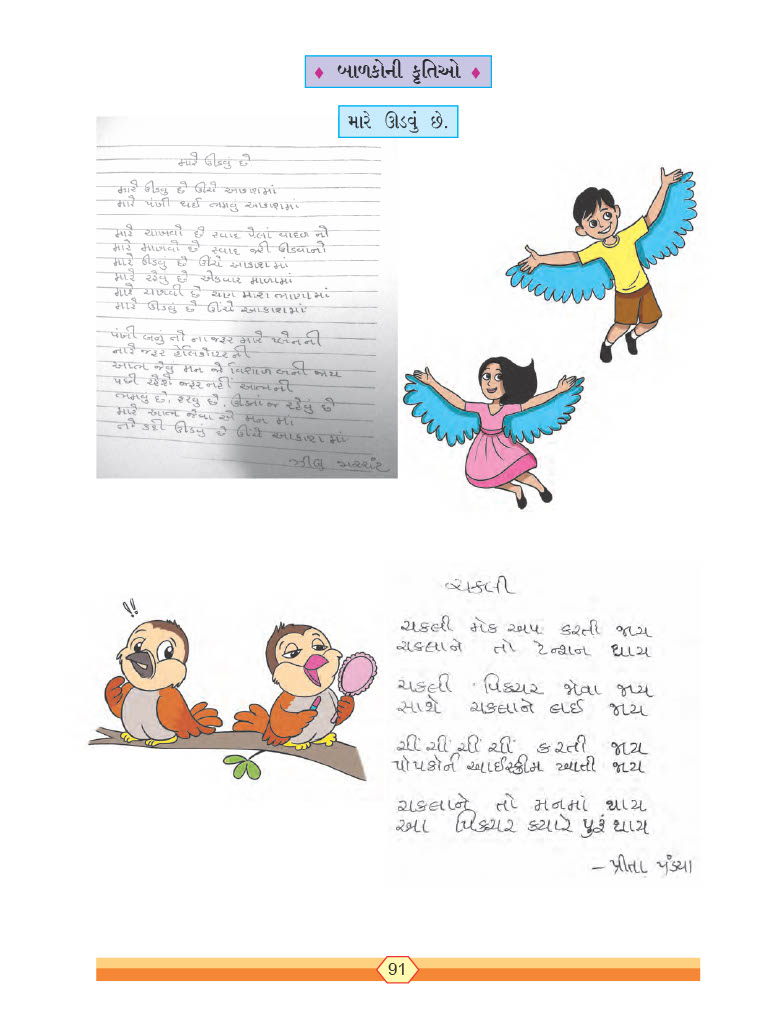 ♦ બાળકોની કૃતિઓ ♦
મારે ઊડવું છે.
મારે ઊડવું છે
મારે ઊડવું છે ઊંચે આકાશમાં
મારે પંખી થઈ ભમવું આકાશમાં
મારે ચાખવો છે સ્વાદ પેલાં વાદળનો
મારે માણવો છે સ્વાદ ફરી ઊડવાનો
મારે ઊડવું છે ઊંચે આકાશમાં
મારે રહેવું છે એકવાર માળામાં
મારે ચાખવી છે ચણ મારા માળામાં
મારે ઊડવું છે ઊંચે આકાશમાં
પંખી બનું તો ના જરૂર મારે પ્લેનની
નારે જરૂર હેલિકોપ્ટરની
આભ જેવું મન જો વિશાળ બની જાય
પછી રહેશે જરૂર નહીં આભની
ભમવું છે, ફરવું છે, ઊડતાં જ રહેવું છે
મારે આભ જેવા એ મનમાં
નારે કદી ઊડવું છે ઊંચે આકાશમાં
ચકલી
ચકલી મેક અપ કરતી જાય
ચકલાને તો ટેન્શન થાય
ચકલી પિક્ચર જોવા જાય
સાથે ચકલાને લઈ જાય
ચીં ચીં ચીં ચીં કરતી જાય
પોપકોર્ન આઈસ્ક્રીમ ખાતી જાય
ચકલાને તો મનમાં થાય
આ પિક્ચર ક્યારે પુરું થાય
– પ્રીતા પંડ્યા
91